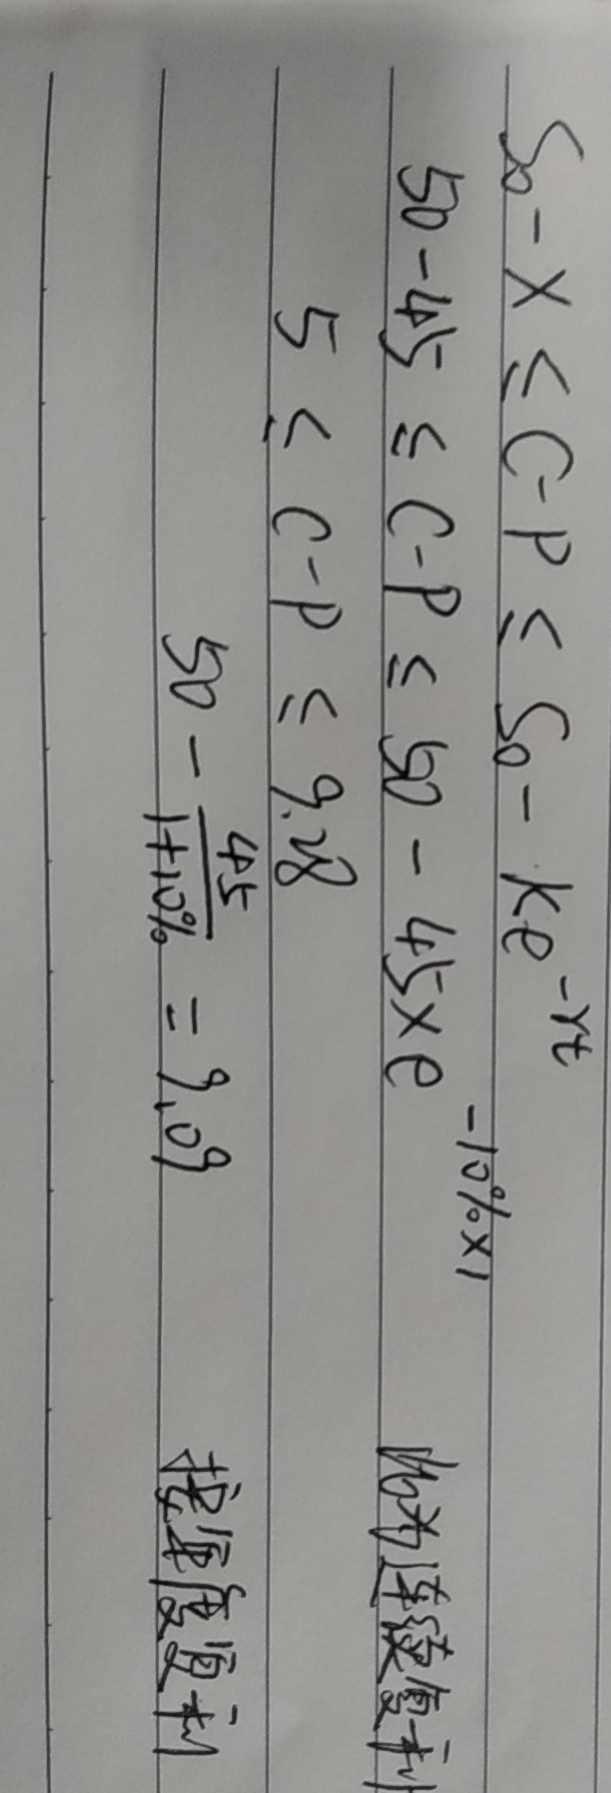 S₀ - X ≤ C - P ≤ S₀ - Ke^{-rt}
50 - 45 ≤ C - P ≤ 50 - 45 × e^{-10%×1} 的为连续复利
5 ≤ C - P ≤ 9.28
50 - \frac{45}{1+10%} = 9.09 按年度复利